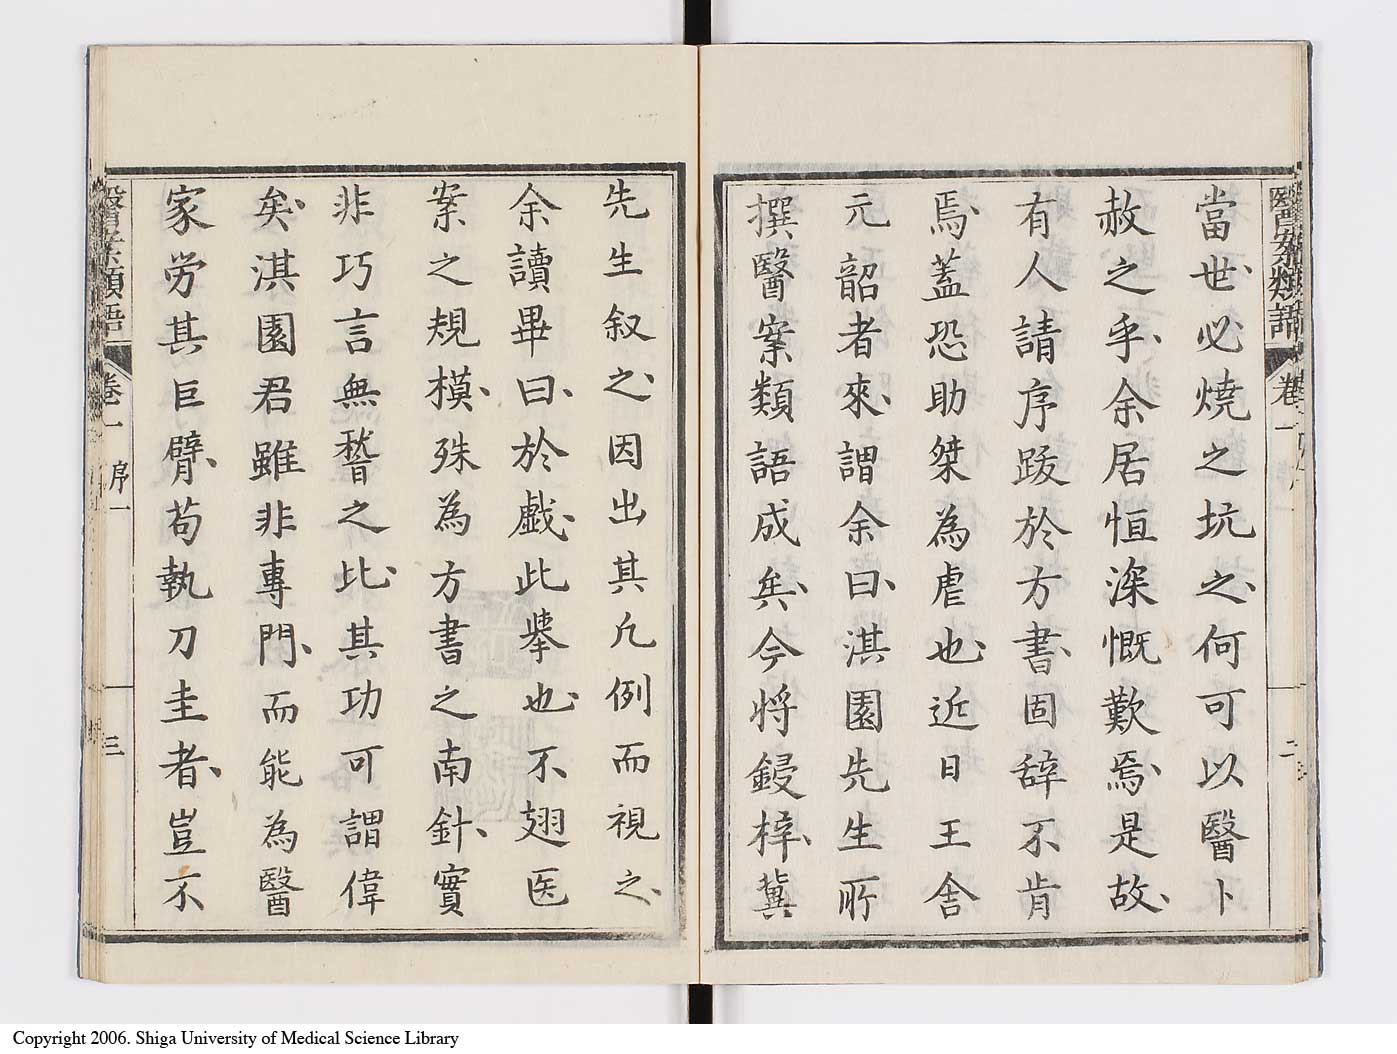 醫案類語 卷一 二
當世、必燒之坑之、何可以醫卜
赦之乎、余居恒深慨歎焉、是故、
有人請序跋於方書、固辞不肯
焉、蓋恐助桀為虐也、近日王舎
元韶者來、謂余曰、淇園先生所
撰醫案類語成矣、今将鋟梓、冀
先生叙之、因出其凢例而視之、
余讀畢曰、於戲、此挙也、不翅医
案之規模、殊為方書之南針、實
非巧言無稽之比、其功可謂偉
矣、淇園君雖非專門、而能為醫
家労其巨臂、苟執刀圭者、豈不
醫案類語 卷一 序一 三
Copyright 2006. Shiga University of Medical Science Library